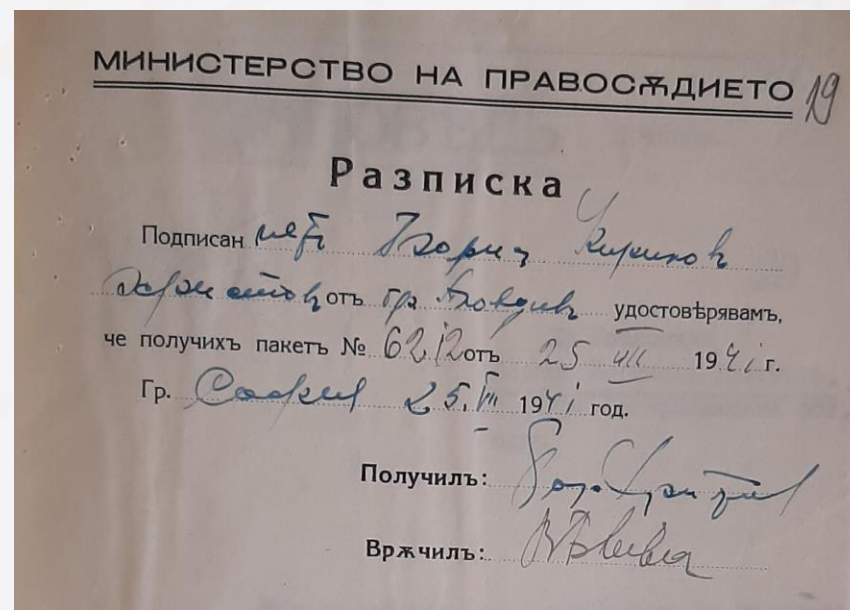 МИНИСТЕРСТВО НА ПРАВОСѪДИЕТО 19
Разписка
Подписан Борис Кирилов
отъ гр. Пловдивъ удостовѣрявамъ,
че получихъ пакетъ № 6212 отъ 25 VII 1941 г.
Гр. София 25.VII 1941 год.
Получилъ:
Врѫчилъ: